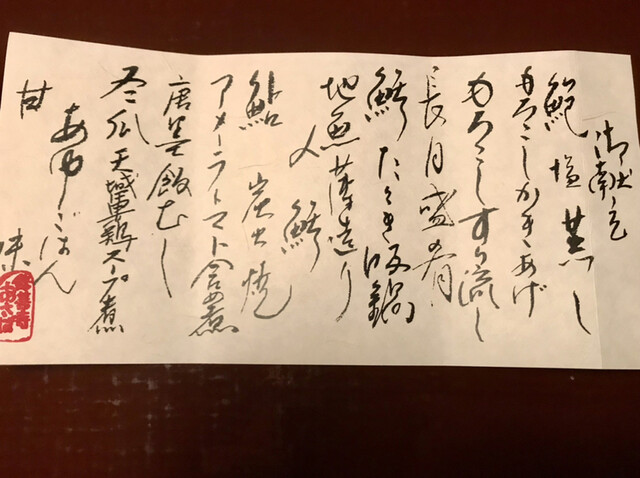 御献立
鮑塩蒸し
もろこしかきあげ
もろこしすり流し
長月盛肴
鯵たたき
地魚薄造り
鯵
鮎炭火焼
アメーラトマト含め煮
唐墨飯むし
冬瓜天城軍鶏スープ煮
あゆごはん
甘味